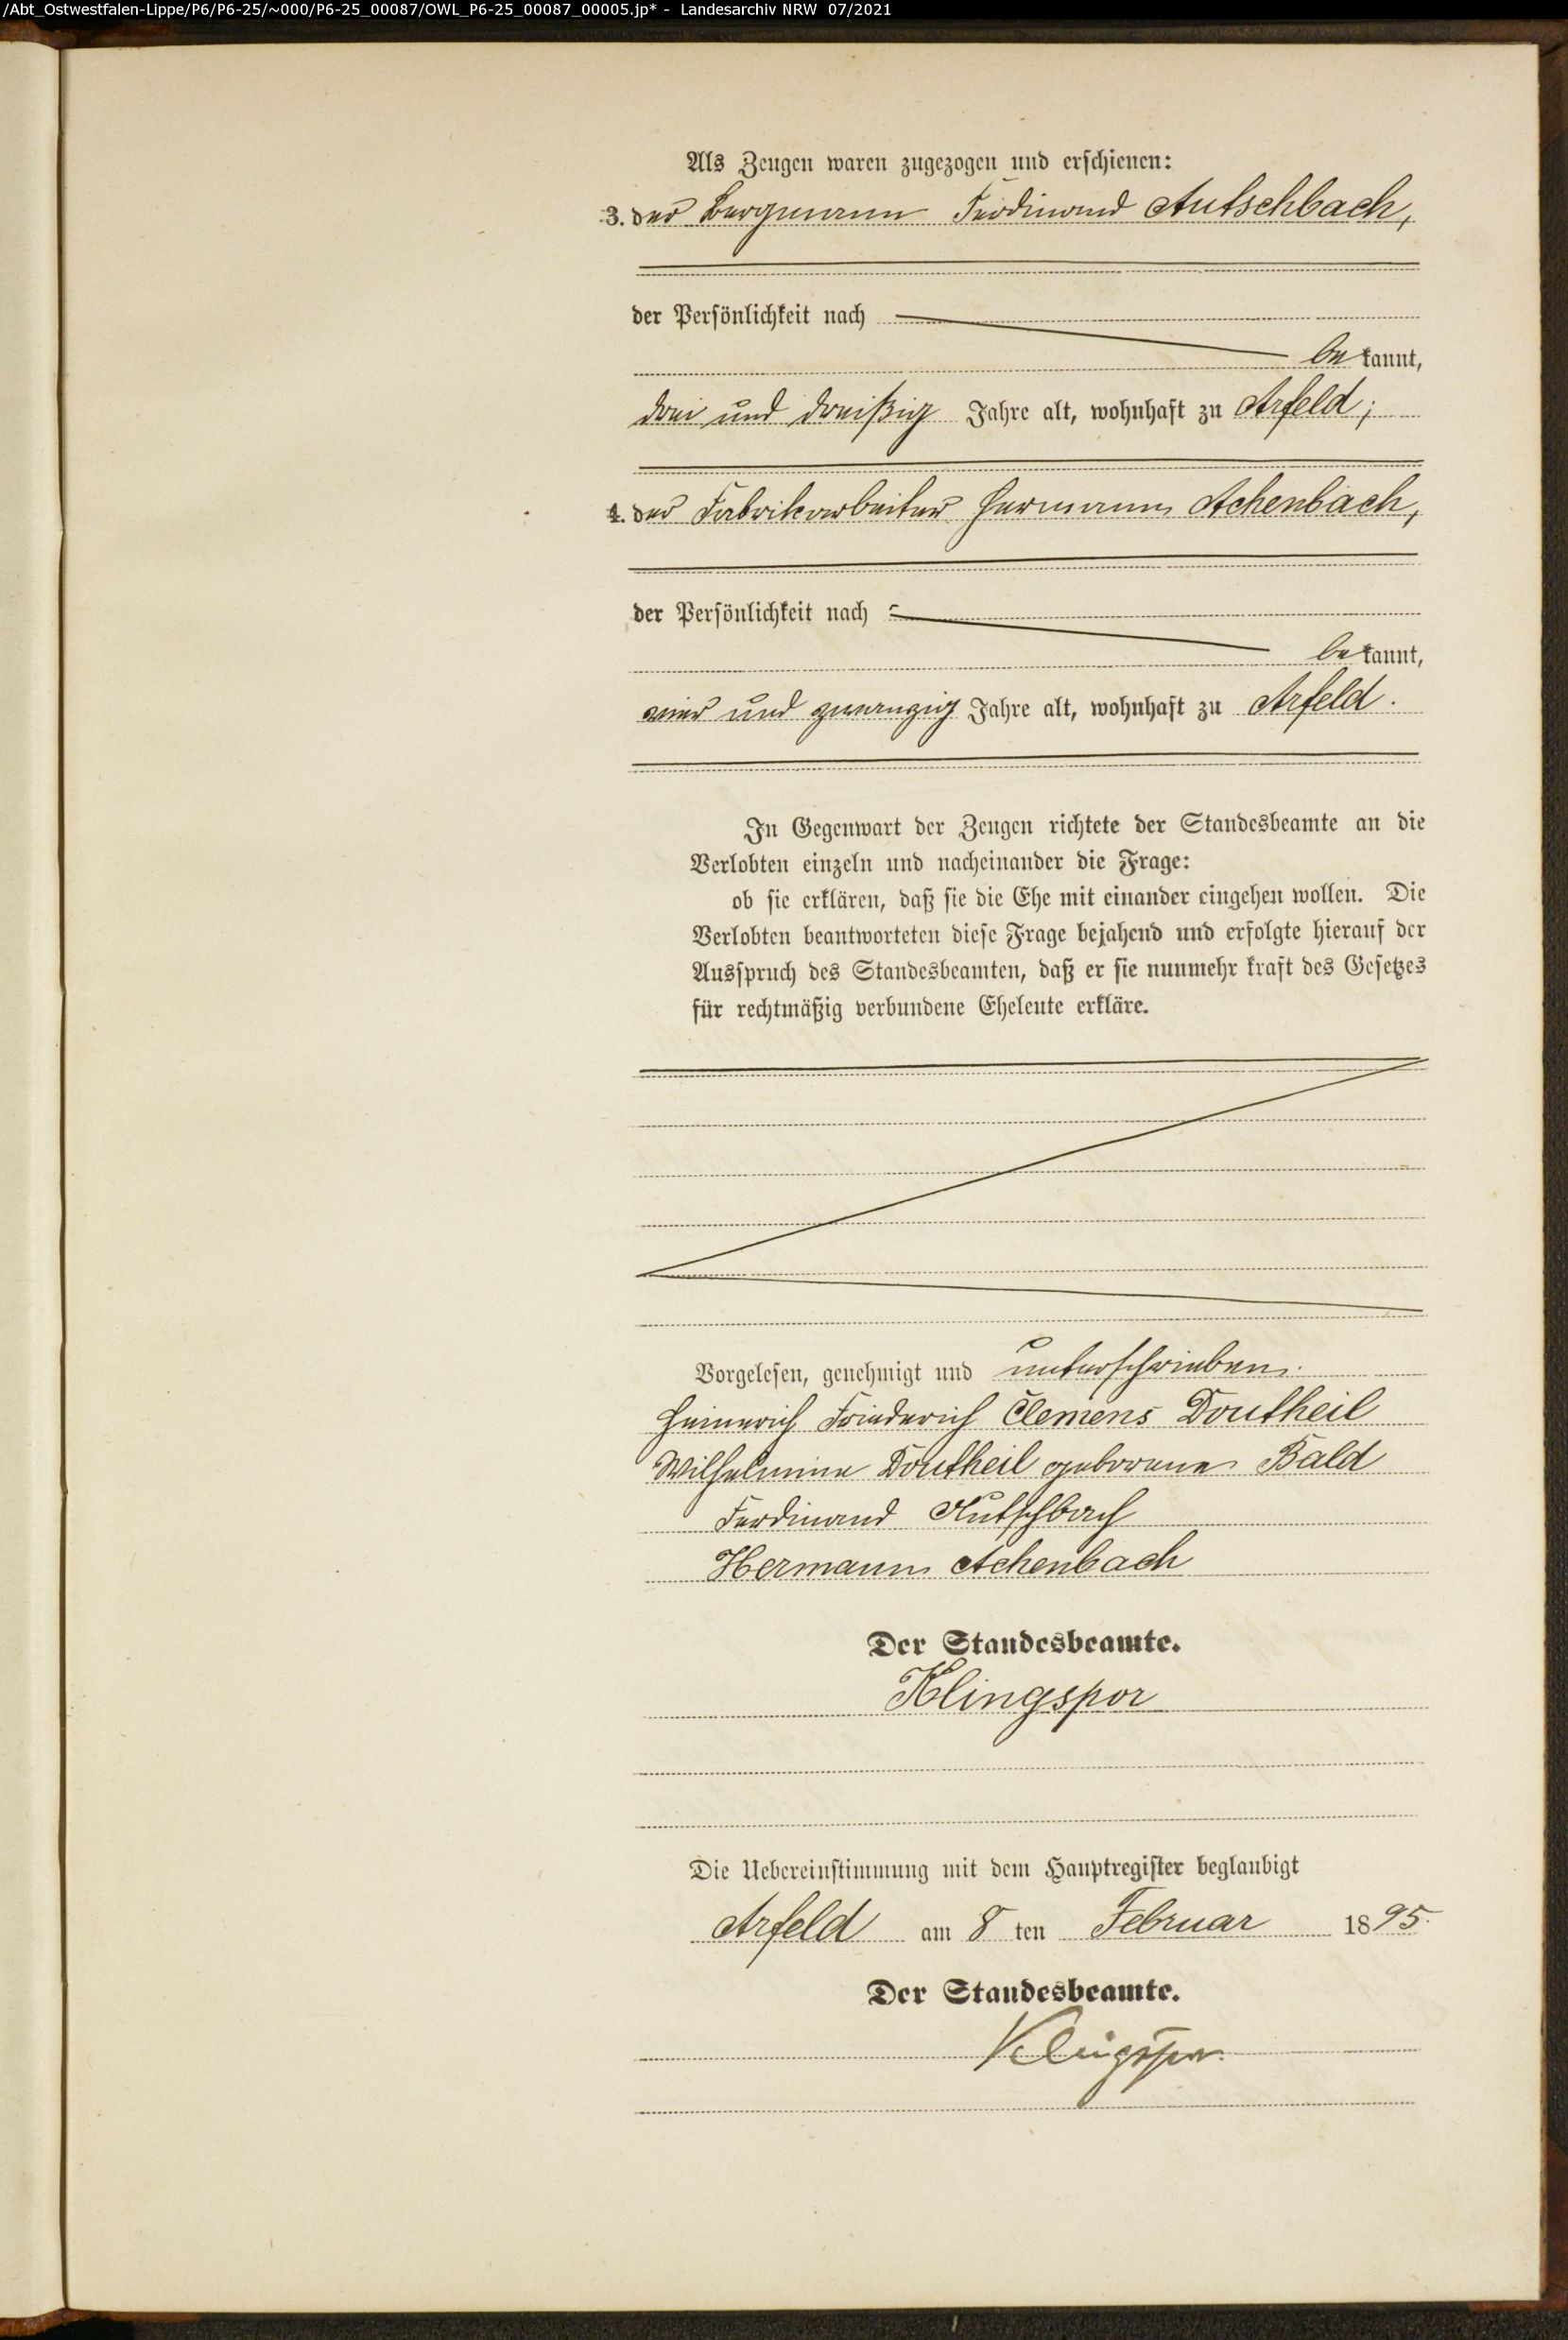 /Abt_Ostwestfalen-Lippe/P6/P6-25/~000/P6-25_00087/OWL_P6-25_00087_00005.jp* - Landesarchiv NRW 07/2021
Als Zeugen waren zugezogen und erschienen:
3. der Bergmann Ferdinand Autschbach,
der Persönlichkeit nach
be kannt,
drei und dreißig Jahre alt, wohnhaft zu Arfeld;
4. der Fabrikarbeiter Hermann Achenbach,
der Persönlichkeit nach
be kannt,
vier und zwanzig Jahre alt, wohnhaft zu Arfeld.
In Gegenwart der Zeugen richtete der Standesbeamte an die
Verlobten einzeln und nacheinander die Frage:
ob sie erklären, daß sie die Ehe mit einander eingehen wollen. Die
Verlobten beantworteten diese Frage bejahend und erfolgte hierauf der
Ausspruch des Standesbeamten, daß er sie nunmehr kraft des Gesetzes
für rechtmäßig verbundene Eheleute erkläre.
Vorgelesen, genehmigt und unterschrieben.
Heinrich Friederich Clemens Doutheil
Wilhelmine Doutheil geborene Bald
Ferdinand Autschbach
Hermann Achenbach
Der Standesbeamte.
Klingspor
Die Uebereinstimmung mit dem Hauptregister beglaubigt
Arfeld am 8 ten Februar 1895.
Der Standesbeamte.
Klingspor.